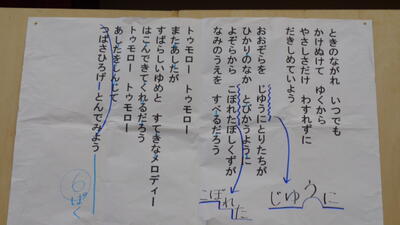 ときのながれ　いつでも
かけぬけて　ゆくから
やさしさだけ　わすれずに
だきしめていよう
おおぞらを　じゆうにとりたちが
ひかりのなか　とびかうように
よぞらから　こぼれたほしくずが
なみのうえを　すべるだろう
トゥモロー　トゥモロー
またあしたが
すばらしいゆめと　すてきなメロディー
はこんできてくれるだろう
トゥモロー　トゥモロー
あしたをしんじて
つばさひろげーとんでみよう
じゆうに
こぼれた
⑥ぱく